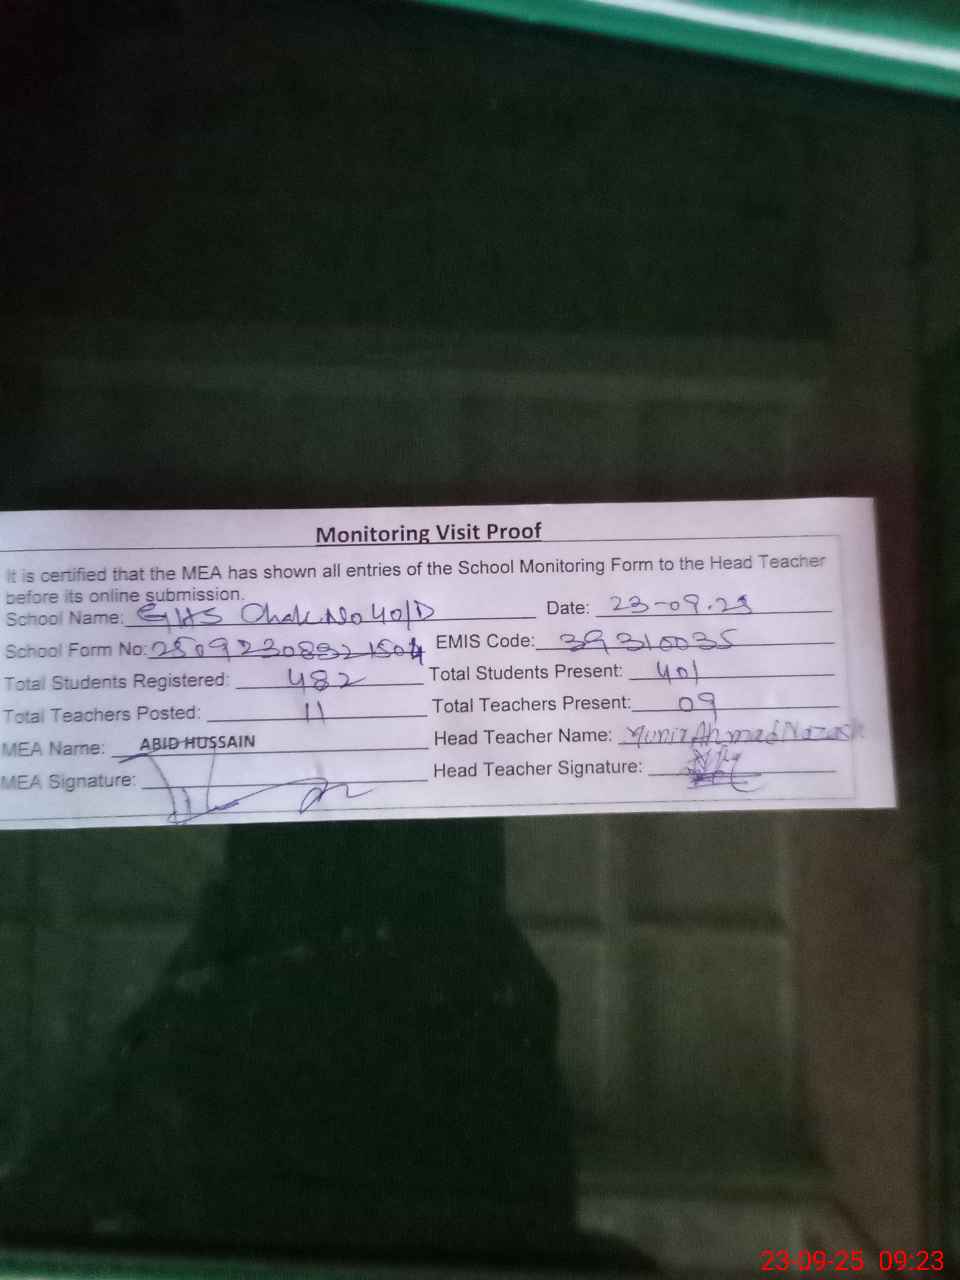 Monitoring Visit Proof
It is certified that the MEA has shown all entries of the School Monitoring Form to the Head Teacher
before its online submission.
School Name: GHS Chak No 40/D Date: 23-09-25
School Form No: 25092308321504 EMIS Code: 39310035
Total Students Registered: 482 Total Students Present: 401
Total Teachers Posted: 11 Total Teachers Present: 09
MEA Name: ABID HUSSAIN Head Teacher Name: Munir Ahmad
MEA Signature: Head Teacher Signature:
23-09-25 09:23